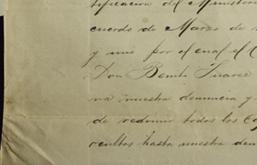 tificacion del Ministe
cuerdo de Marzo de
y uno por el cual el C
Don Benito Suarez
va nuestra denuncia y
de redimir todos los Ca
ocultos hasta nuestra den